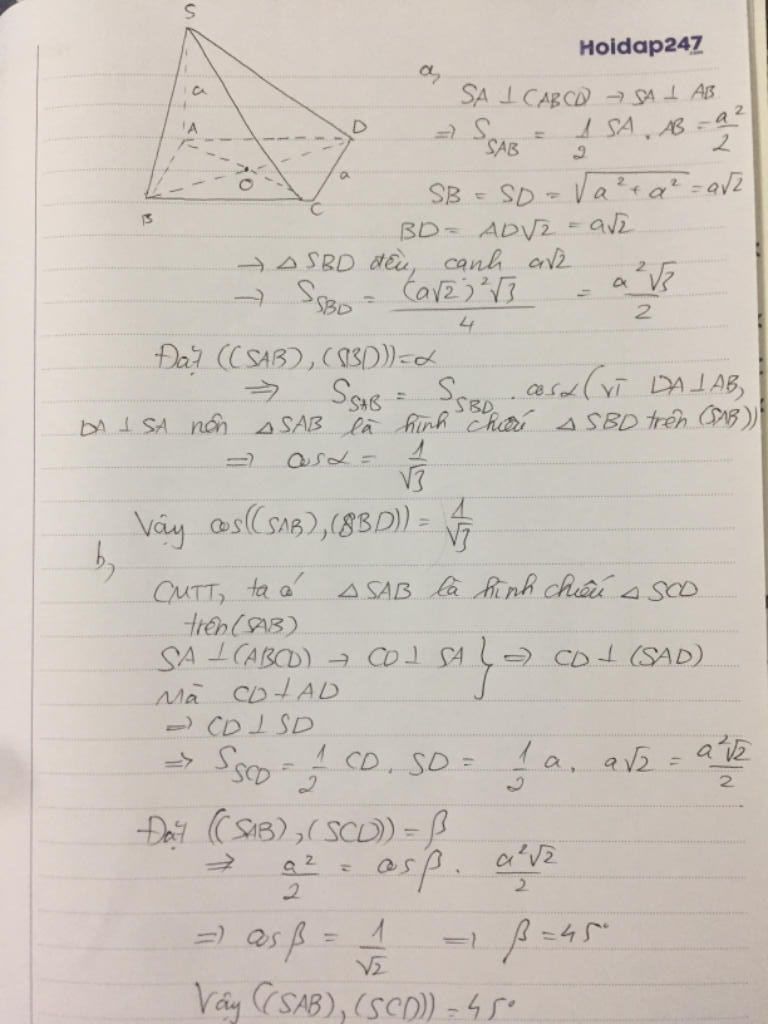 S
Hoidap247
a
A
D
O
a
B
C
a,
SA ⊥ (ABCD) → SA ⊥ AB
⇒ S_SAB = 1/2 SA . AB = a²/2
SB = SD = √(a² + a²) = a√2
BD = AD√2 = a√2
→ △SBD đều, cạnh a√2
→ S_SBD = (a√2)²√3/4 = a²√3/2
Đặt ((SAB), (SBD)) = α
⇒ S_SAB = S_SBD . cosα (vì DA ⊥ AB,
DA ⊥ SA nên △SAB là hình chiếu △SBD trên (SAB))
⇒ cosα = 1/√3
Vậy cos((SAB), (SBD)) = 1/√3
b,
CMTT, ta có △SAB là hình chiếu △SCD
trên (SAB)
SA ⊥ (ABCD) → CD ⊥ SA } ⇒ CD ⊥ (SAD)
Mà CD ⊥ AD
⇒ CD ⊥ SD
⇒ S_SCD = 1/2 CD . SD = 1/2 a . a√2 = a²√2/2
Đặt ((SAB), (SCD)) = β
⇒ a²/2 = cosβ . a²√2/2
⇒ cosβ = 1/√2 ⇒ β = 45°
Vậy ((SAB), (SCD)) = 45°